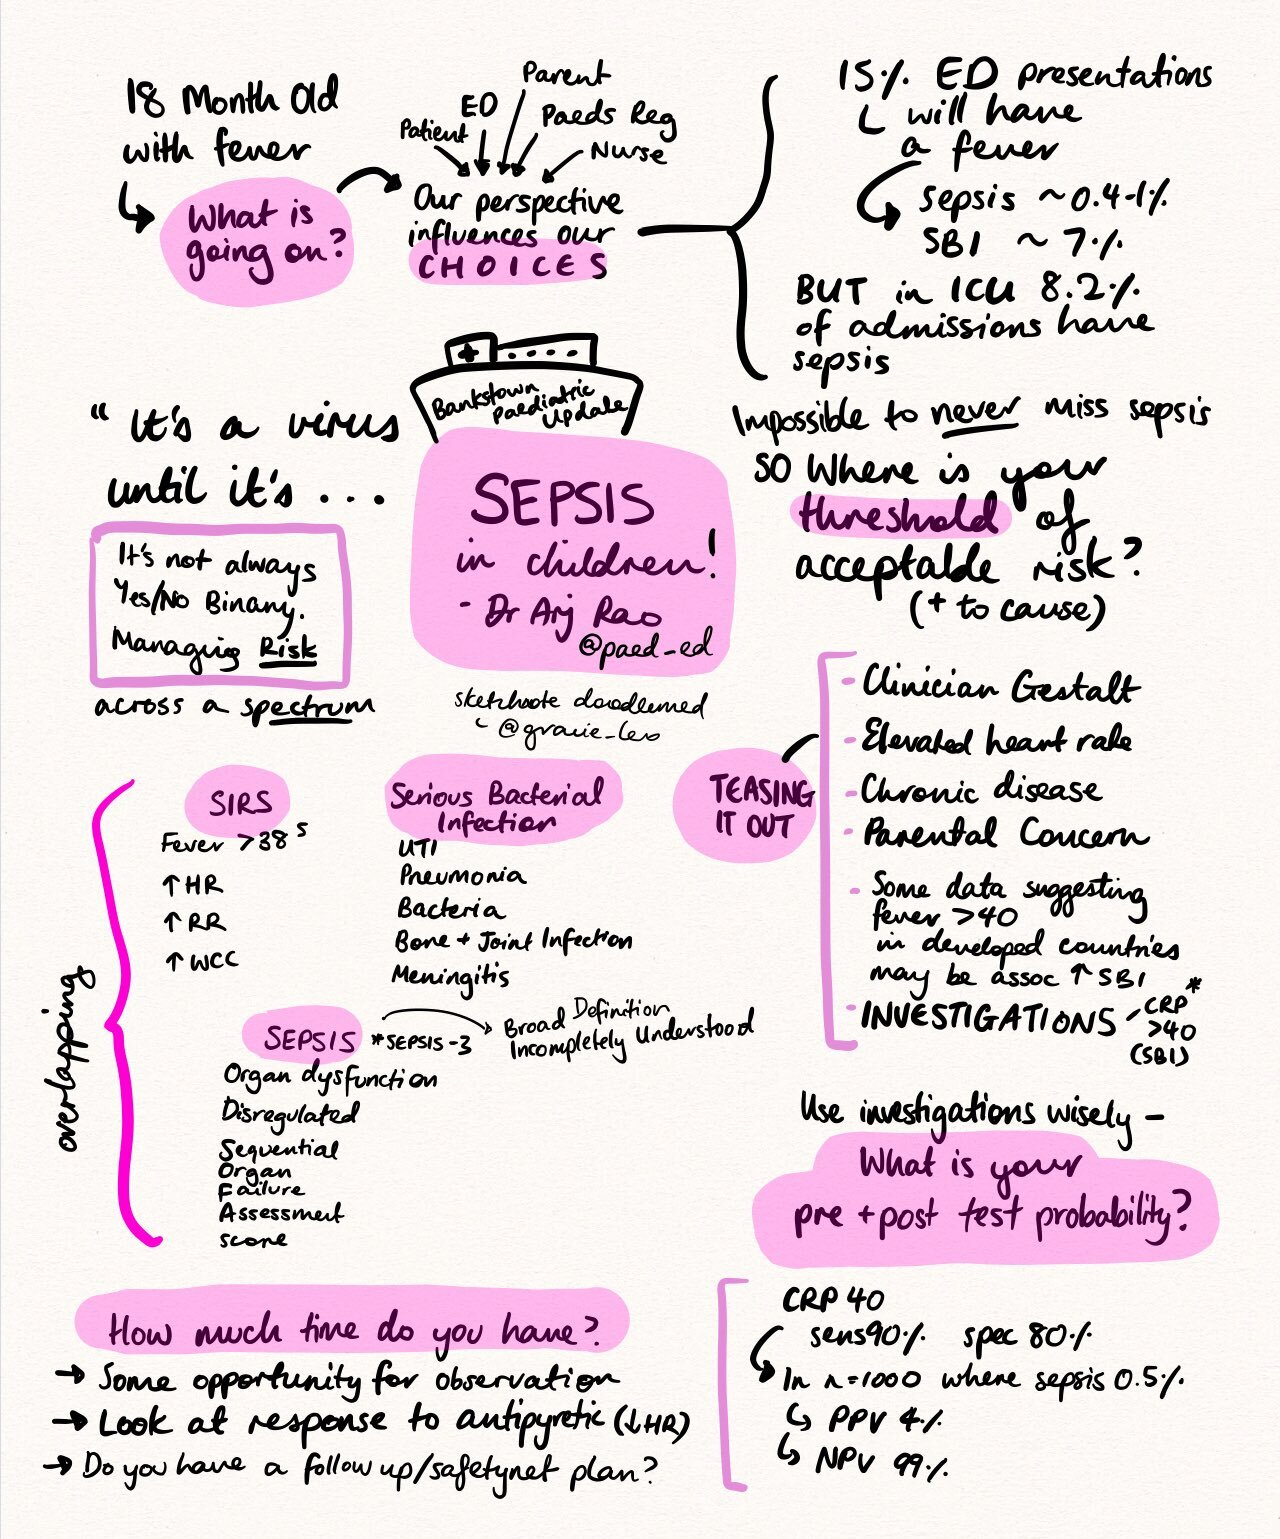 18 Month Old
with fever
What is
going on?
Parent
ED
Patient
Paeds Reg
Nurse
Our perspective
influences our
CHOICES
15% ED presentations
will have
a fever
sepsis ~0.4-1%
SBI ~ 7%
BUT in ICU 8.2%
of admissions have
sepsis
Impossible to never miss sepsis
SO Where is your
threshold of
acceptable risk?
(+ to cause)
"It's a virus
until it's ...
It's not always
Yes/No Binary.
Managing Risk
across a spectrum
Bankstown
Paediatric
Update
SEPSIS
in children!
- Dr Arj Rao
@paed_ed
sketchnote doodled
@gracie_leo
TEASING
IT OUT
- Clinician Gestalt
- Elevated heart rate
- Chronic disease
- Parental Concern
- Some data suggesting
fever >40
in developed countries
may be assoc ↑SBI
- INVESTIGATIONS - CRP*
>40
(SBI)
overlapping
SIRS
Fever >38⁵
↑HR
↑RR
↑WCC
Serious Bacterial
Infection
UTI
Pneumonia
Bacteria
Bone + Joint Infection
Meningitis
SEPSIS *SEPSIS-3
Broad Definition
Incompletely Understood
Organ dysfunction
Disregulated
Sequential
Organ
Failure
Assessment
score
Use investigations wisely -
What is your
pre + post test probability?
How much time do you have?
→ Some opportunity for observation
→ Look at response to antipyretic (↓HR)
→ Do you have a follow up/safetynet plan?
CRP 40
sens90% spec 80%
In n=1000 where sepsis 0.5%
PPV 4%
NPV 99%